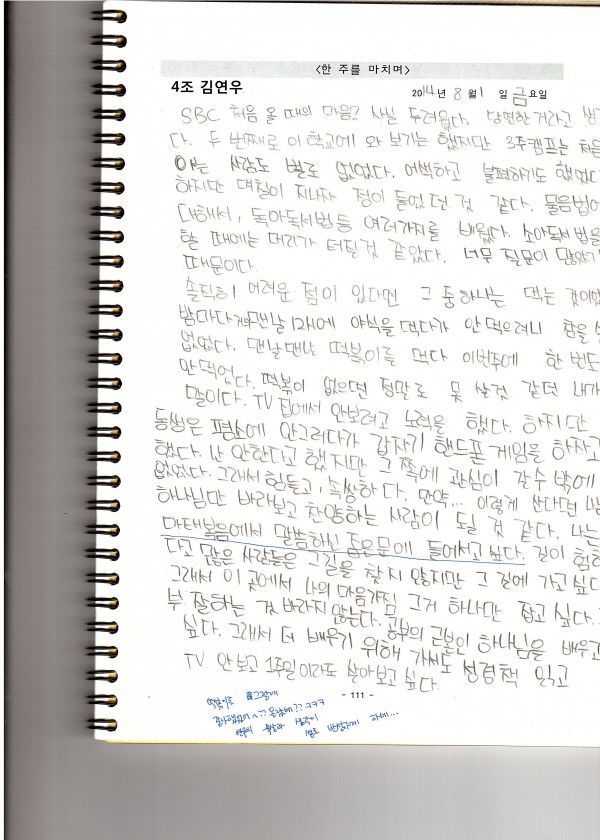 <한 주를 마치며>
4조 김연우
2014년 8월 1일 금요일
SBC 처음 올 때의 마음? 사실 두려웠다. 당연한거라고 생
다. 두 번째로 이 학교에 와 보기는 했지만 3주캠프는 처음
아는 사람도 별로 없었다. 어색하고 불편하기도 했었다
하지만 며칠이 지나자 정이 들었던 것 같다. 물음법에
대해서, 독아독서법등 여러가지를 배웠다. 소아독서법을
할 때에는 머리가 터질것 같았다. 너무 질문이 많았기
때문이다.
솔직히 어려운 점이 있다면 그 중 하나는 먹는 것이었
밤마다 맨날 12시에 야식을 먹다가 안먹으려니 참을 수
없었다. 맨날맨날 떡볶이를 먹다 이번주에 한 번도
안먹었다. 떡볶이 없으면 정말로 못 살것 같던 내가
말이다. TV 집에서 안보려고 노력을 했다. 하지만
동생은 평소에 안그러다가 갑자기 핸드폰 게임을 하자고
했다. 난 안한다고 했지만 그 쪽에 관심이 갈수 밖에
없었다. 그래서 힘들고, 속상하다. 만약... 이렇게 산다면
하나님만 바라보고 찬양하는 사람이 될 것 같다. 나는
마태복음에서 말씀하신 좁은문에 들어서고 싶다. 길이 험하
다고 많은 사람들은 그길을 찾지 않지만 그 길에 가고싶다
그래서 이 곳에서 나의 마음가짐 그거 하나만 잡고 싶다.
부 잘하는 것 바라지 않는다. 공부의 근본인 하나님을 배우고
싶다. 그래서 더 배우기 위해 가서도 성령책 읽고
TV 안보고 1주일이라도 살아보고 싶다.
- 111 -